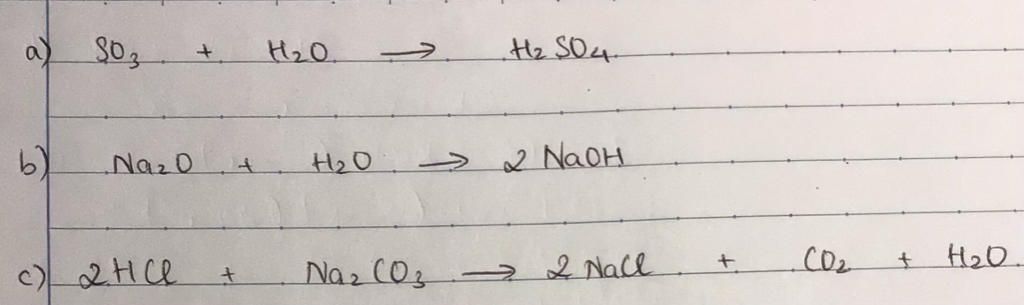 a) SO₃ + H₂O → H₂SO₄
b) Na₂O + H₂O → 2 NaOH
c) 2HCl + Na₂CO₃ → 2 NaCl + CO₂ + H₂O